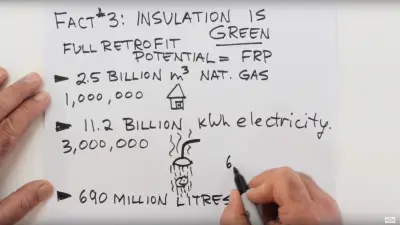 FACT #3: INSULATION IS
GREEN
FULL RETROFIT
POTENTIAL = FRP
► 2.5 BILLION m³ NAT. GAS
1,000,000
► 11.2 BILLION kWh electricity.
3,000,000
6
► 690 MILLION LITRES